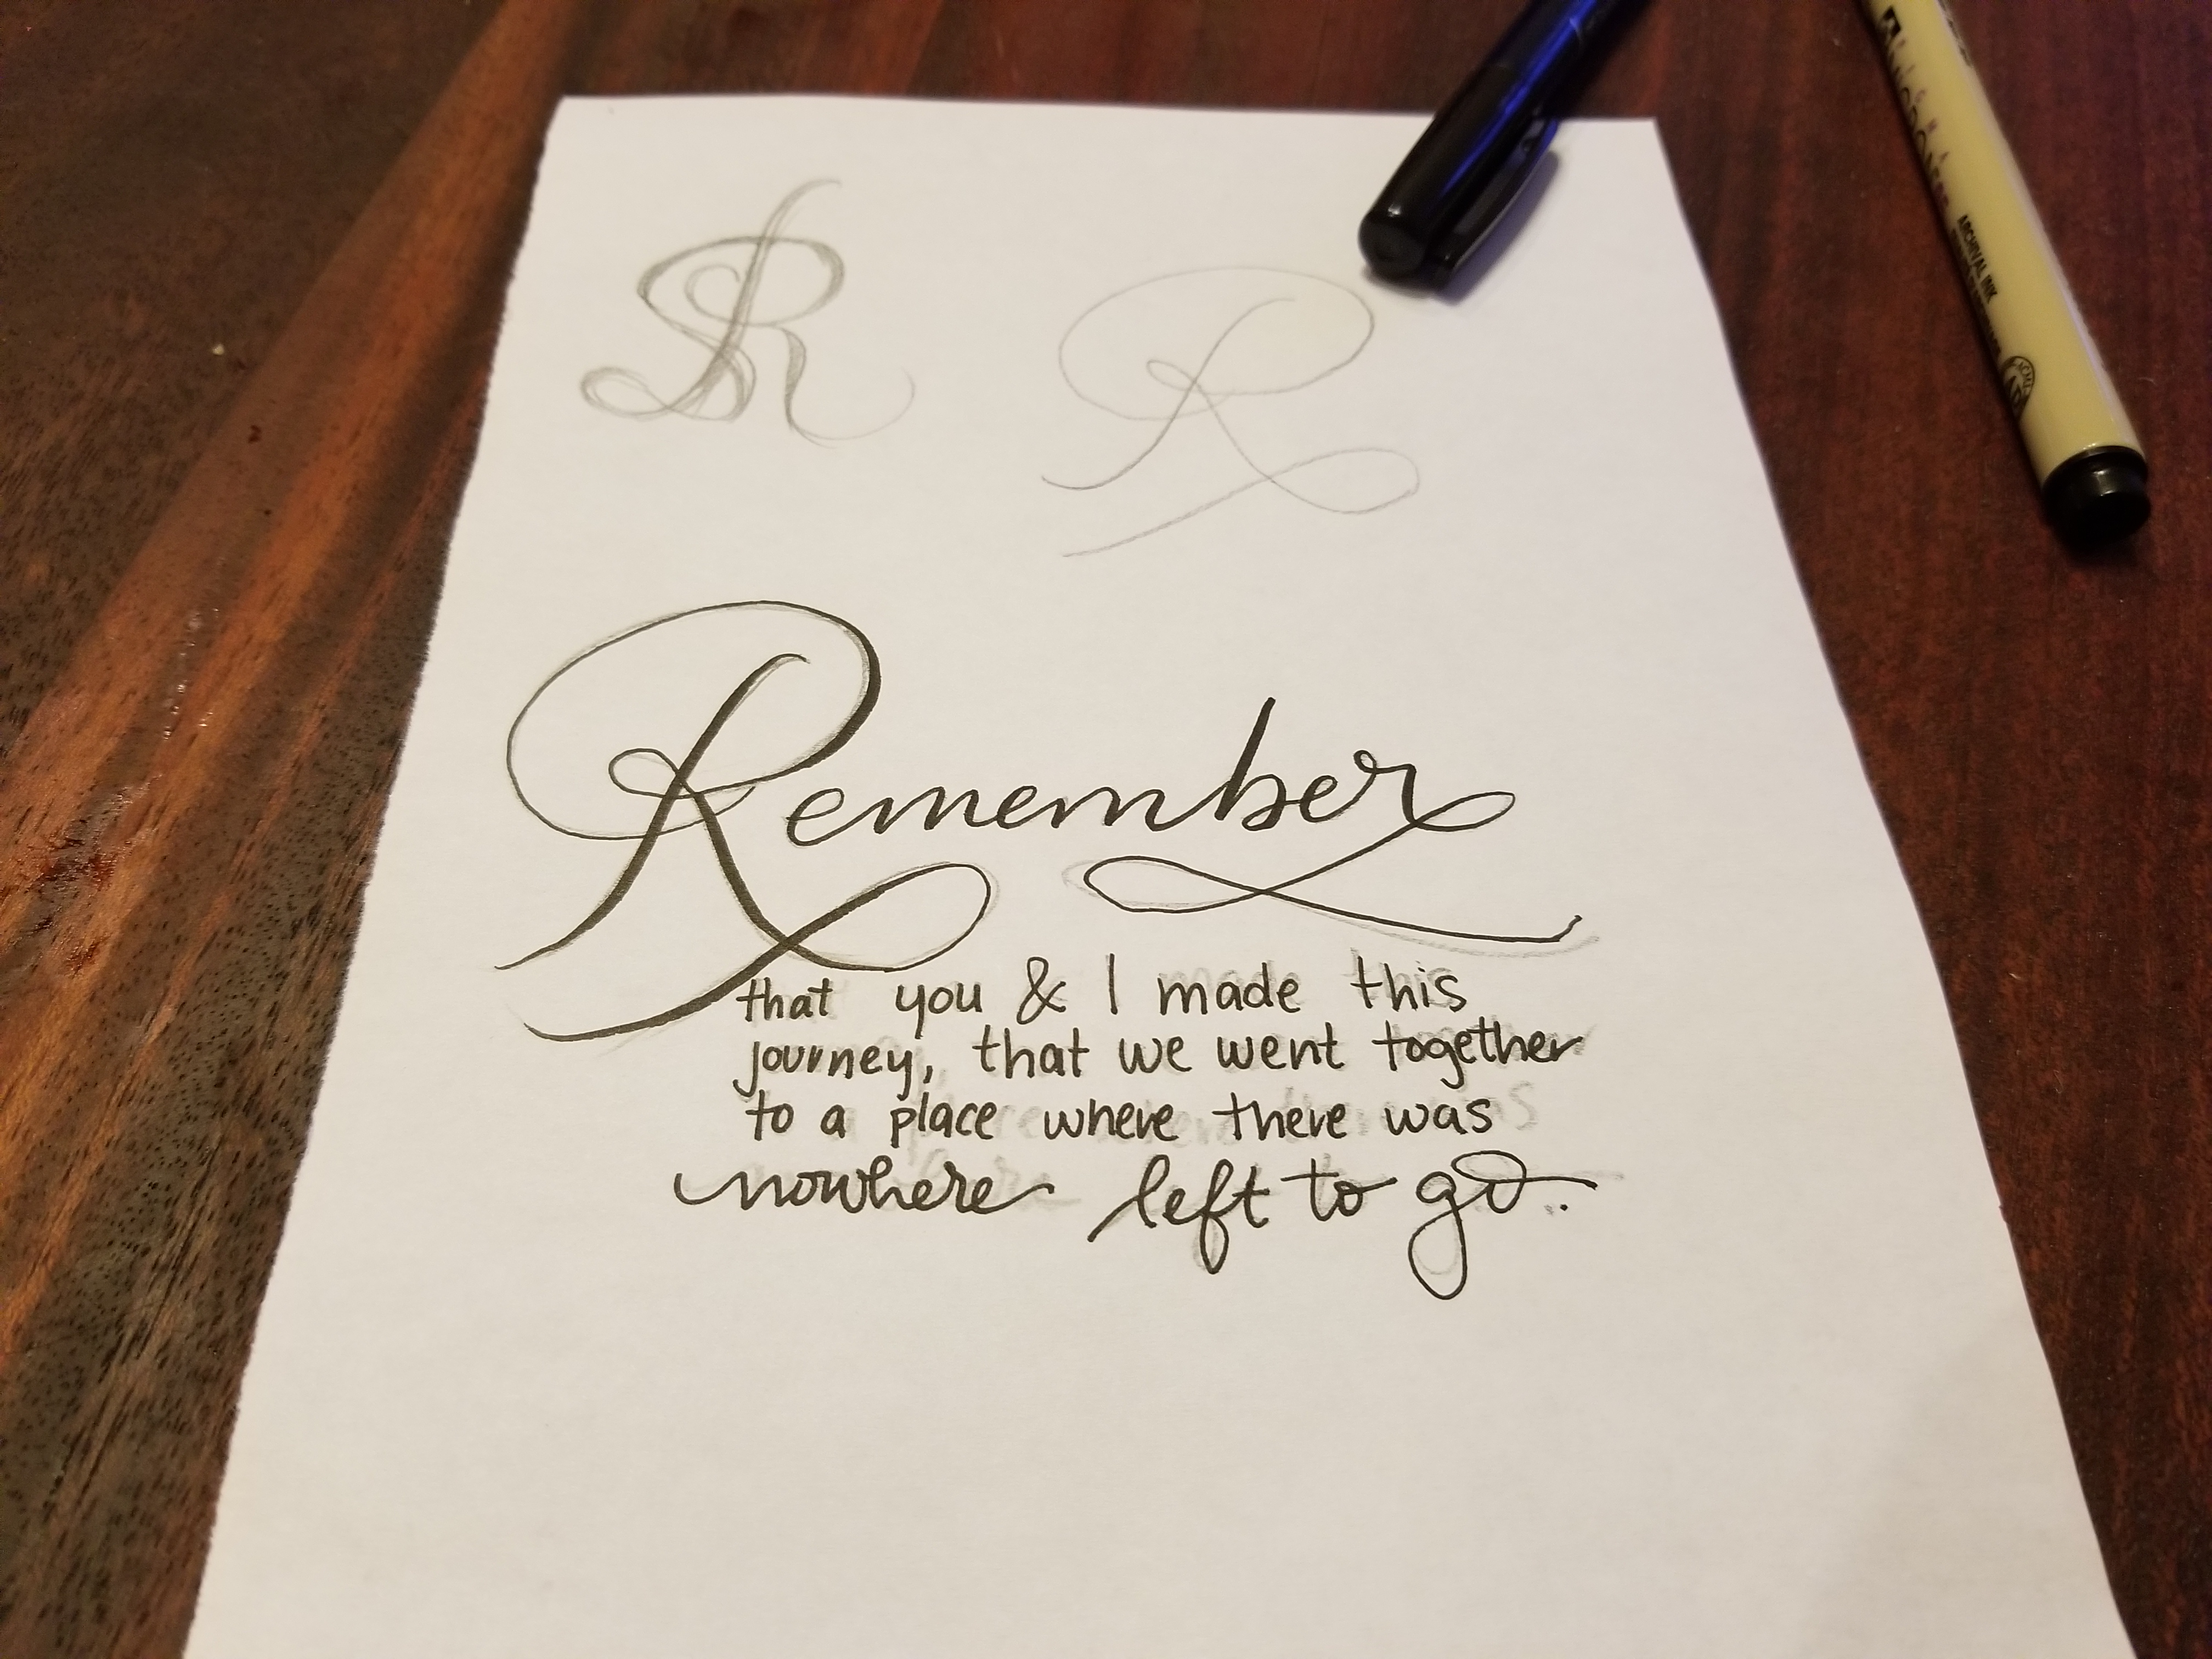 R
R
Remember
that you & I made this
journey, that we went together
to a place where there was
nowhere left to go.
ARCHIVAL INK